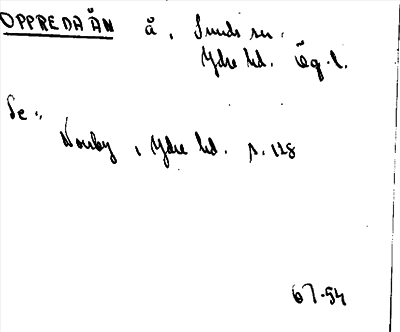 OPPREDAÅN å, Sunds sn.
Ydre hd. Ög.l.
Se:
Norby, Ydre hd. s. 128
67.54